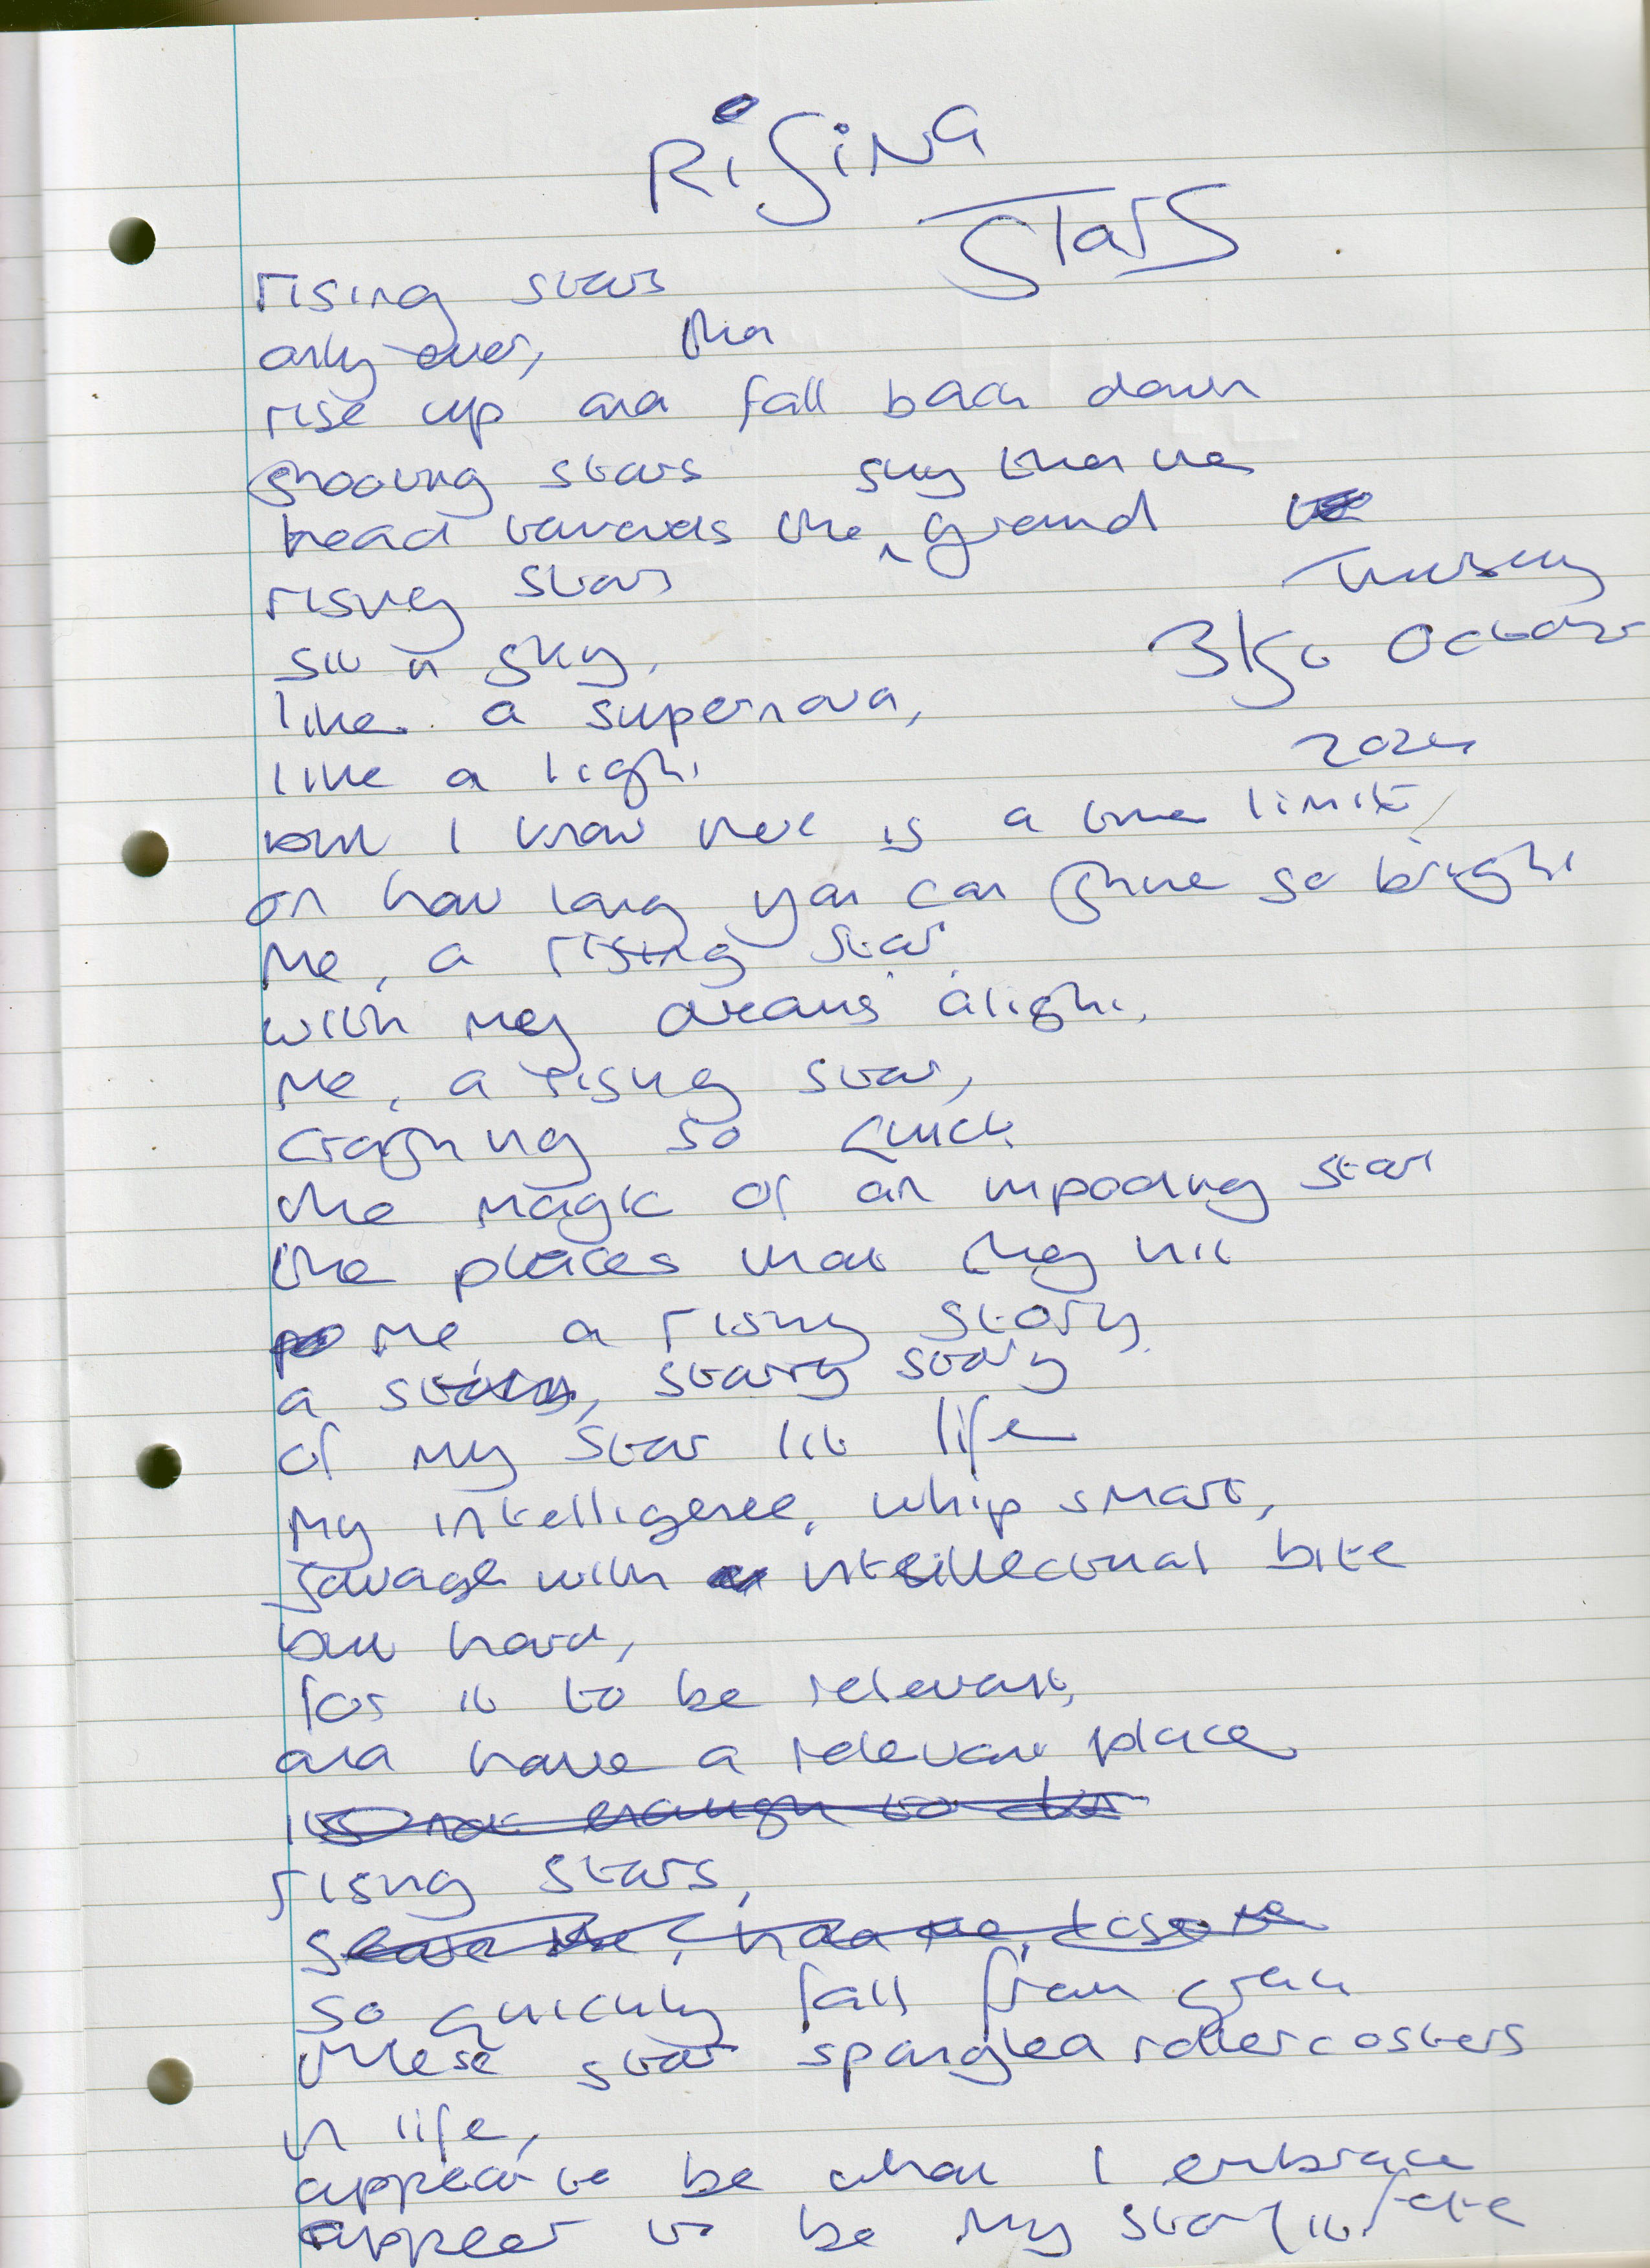 RiSiNG
Stars
rising stars
only ever, then
rise up and fall back down
shooting stars sky then the
head towards the ground
Thursday
rising stars
sit in sky,
31st October
like a supernova,
2024
like a light
but I know there is a time limit
on how long you can shine so bright
Me, a rising star,
with my dreams alight,
Me, a rising star,
crashing so quick
the magic of an imploding star
the places that they hit
me a rising story
a starry, starry story
of my star lit life
My intelligence, whip smart,
savage with intellectual bite
but hard,
for it to be relevant,
and have a relevant place
its not enough to
rising stars,
so quickly fall from grace
these star spangled rollercosters
in life,
appear to be what I embrace
appear to be my star lit fate